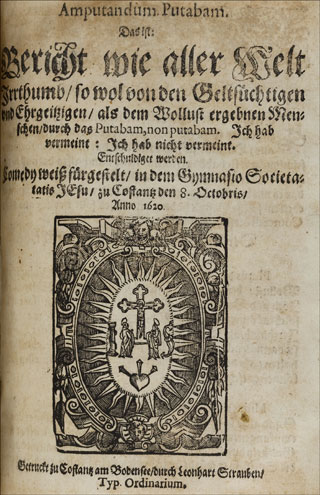 Amputandum Putabam.
Das ist:
Bericht wie aller Welt
Irrthumb/ so wol von den Geltsüchtigen
vnd Ehrgeitzigen / als dem Wollust ergebnen Men-
schen/durch das Putabam, non putabam. Ich hab
vermeint: Ich hab nicht vermeint.
Entschuldiget werden.
Comedy weiß fürgestelt/ in dem Gymnasio Societa-
tatis JEsu/ zu Costantz den 8. Octobris/
Anno 1620.
Getruckt zu Costantz am Bodensee/durch Leonhart Strauben/
Typ. Ordinarium.